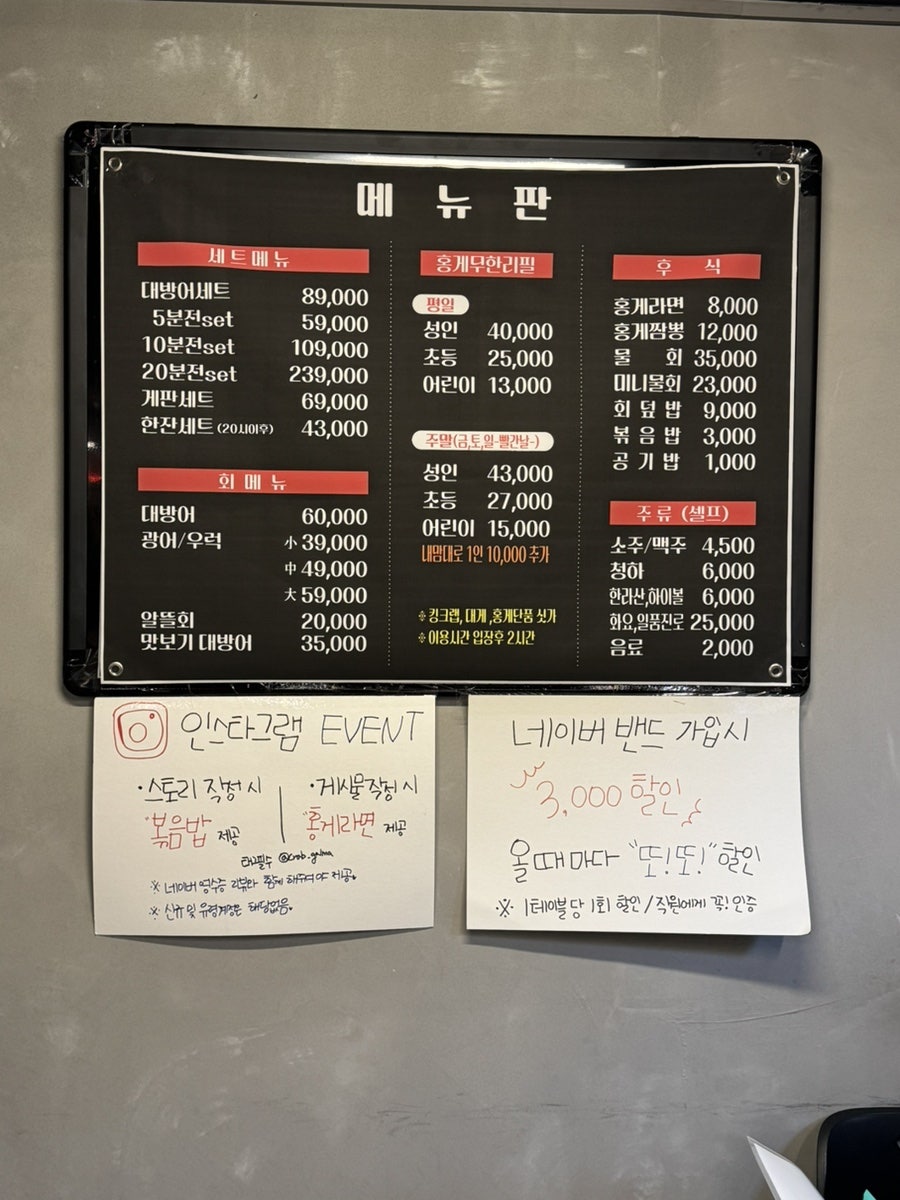 메 뉴 판
세트메뉴
대방어세트 89,000
5분전set 59,000
10분전set 109,000
20분전set 239,000
게판세트 69,000
한잔세트 (20시이후) 43,000
회 메 뉴
대방어 60,000
광어/우럭 小 39,000
中 49,000
大 59,000
알뜰회 20,000
맛보기 대방어 35,000
홍게무한리필
평일
성인 40,000
초등 25,000
어린이 13,000
주말(금,토,일-빨간날-)
성인 43,000
초등 27,000
어린이 15,000
내맘대로 1인 10,000 추가
※ 킹크랩, 대게 ,홍게단품 싯가
※ 이용시간 입장후 2시간
후 식
홍게라면 8,000
홍게짬뽕 12,000
물 회 35,000
미니물회 23,000
회 덮 밥 9,000
볶 음 밥 3,000
공 기 밥 1,000
주류 (셀프)
소주/맥주 4,500
청하 6,000
한라산,하이볼 6,000
화요,일품진로 25,000
음료 2,000
인스타그램 EVENT
· 스토리 작성 시
볶음밥 제공
· 게시물 작성 시
홍게라면 제공
태그필수
※ 네이버 영수증 리뷰와 함께 해주셔야 제공.
※ 신규 및 유령계정은 해당없음.
네이버 밴드 가입시
3,000 할인
올때마다 "또! 또!" 할인
※ 1테이블당 1회 할인 / 직원에게 꼭! 인증